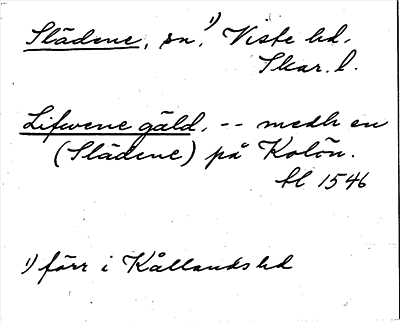 Slädene, sn.¹⁾ Viste hd.
Skar. l.
Lifwene gäld, -- medh en
(Slädene) på Kolön.
hl 1546
¹⁾ förr i Kållands hd